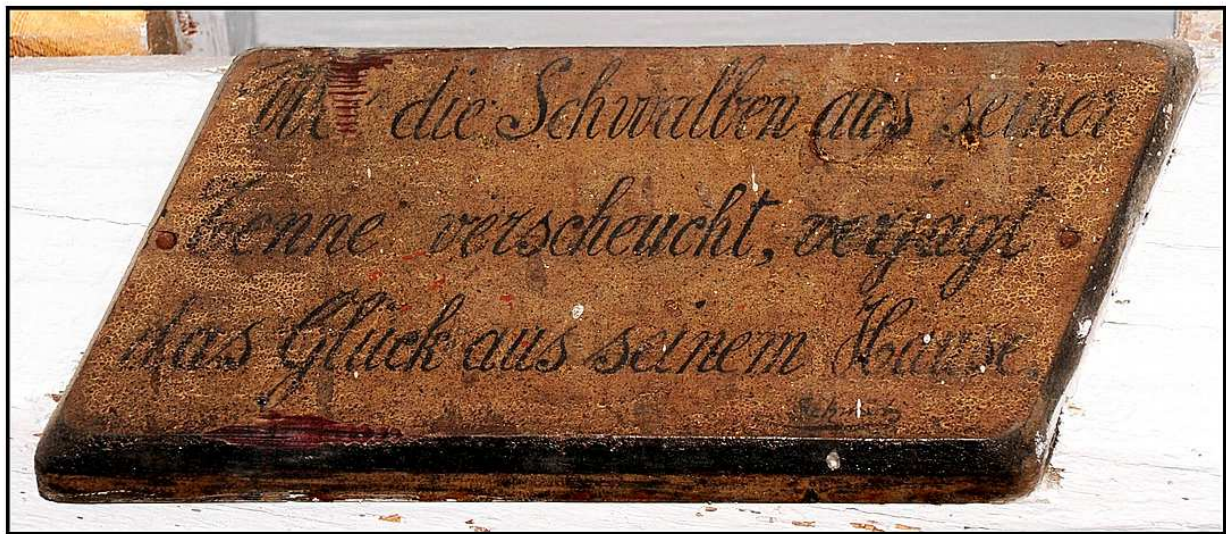 Wer die Schwalben aus seiner
Tenne verscheucht, verjagt
das Glück aus seinem Hause.